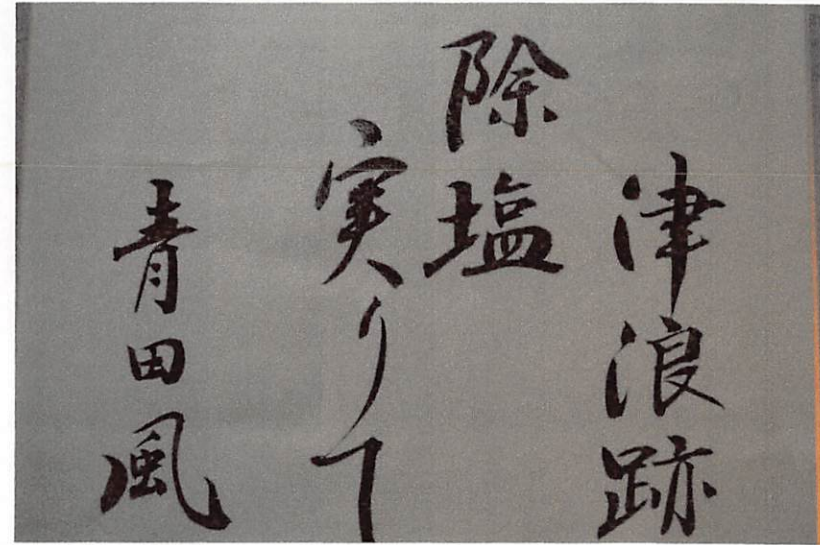 津浪跡
除塩
実りて
青田風